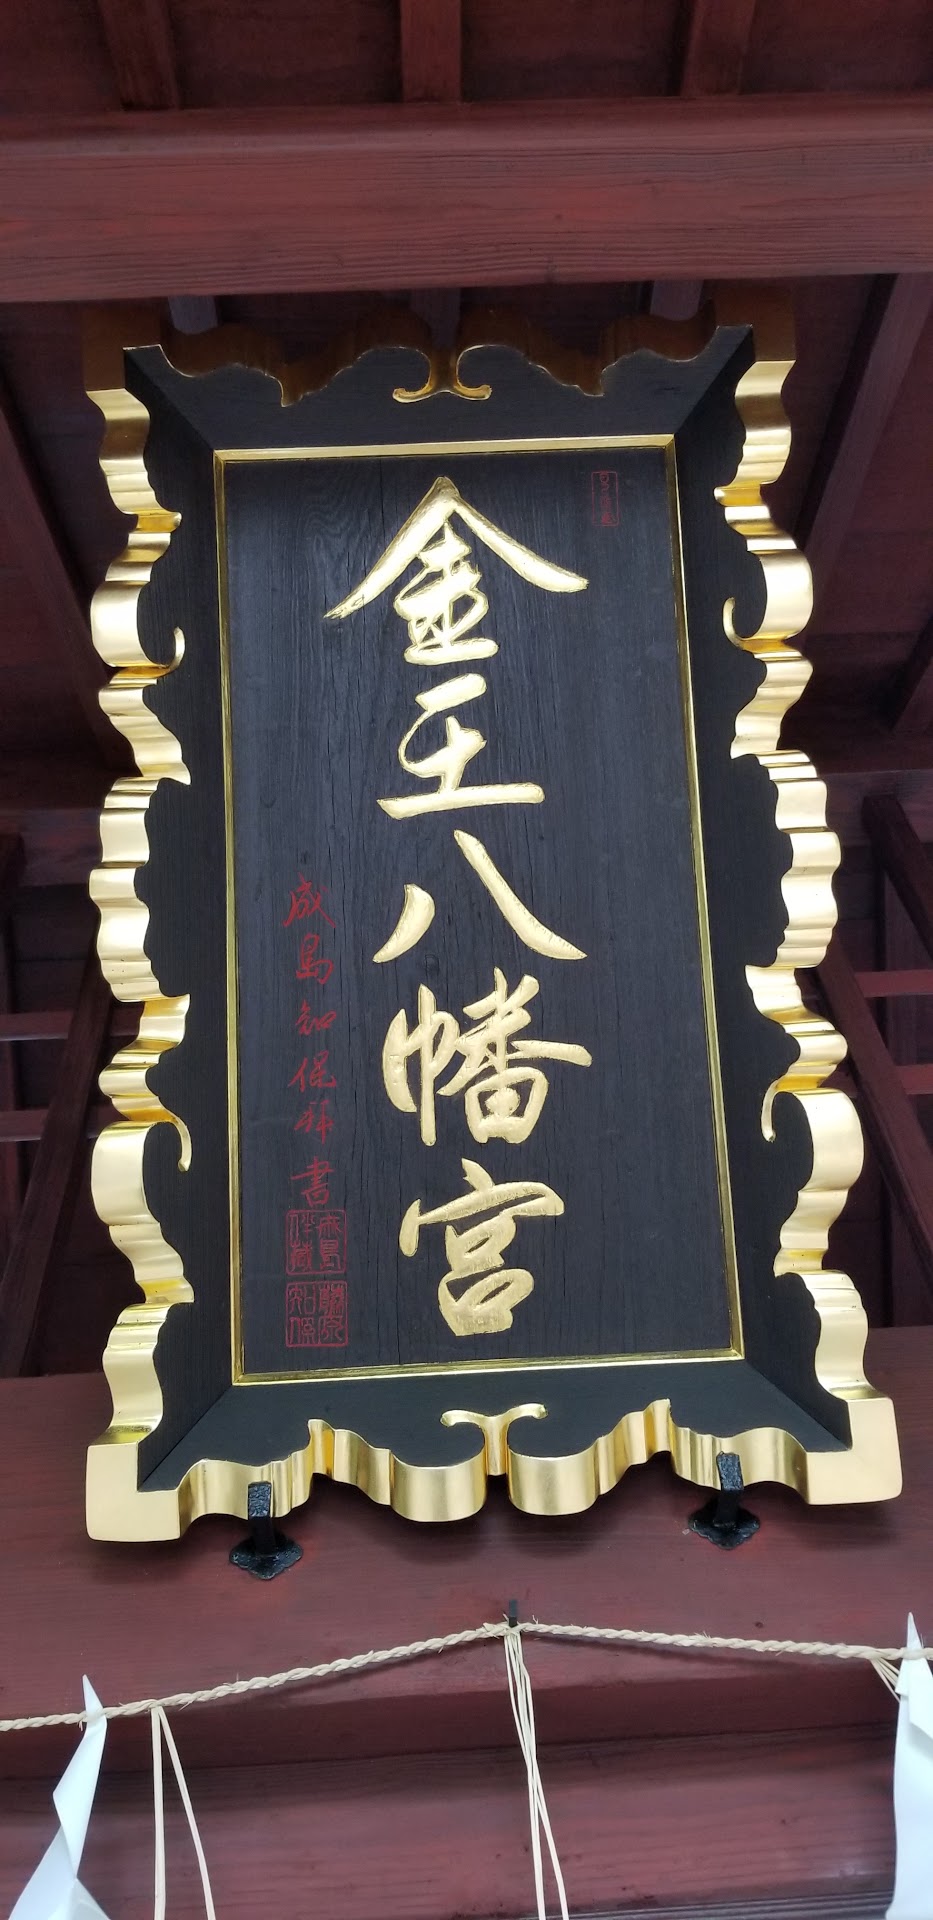 金王八幡宮
成島知侃拜書